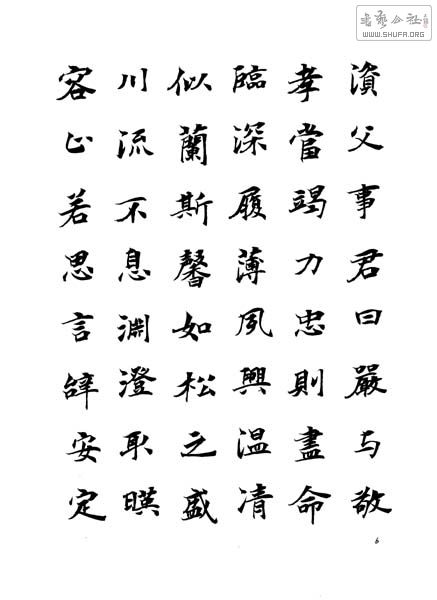 資父事君曰嚴与敬
孝當竭力忠則盡命
臨深履薄夙興温凊
似蘭斯馨如松之盛
川流不息淵澄取暎
容止若思言辞安定
书艺公社
WWW.SHUFA.ORG
6